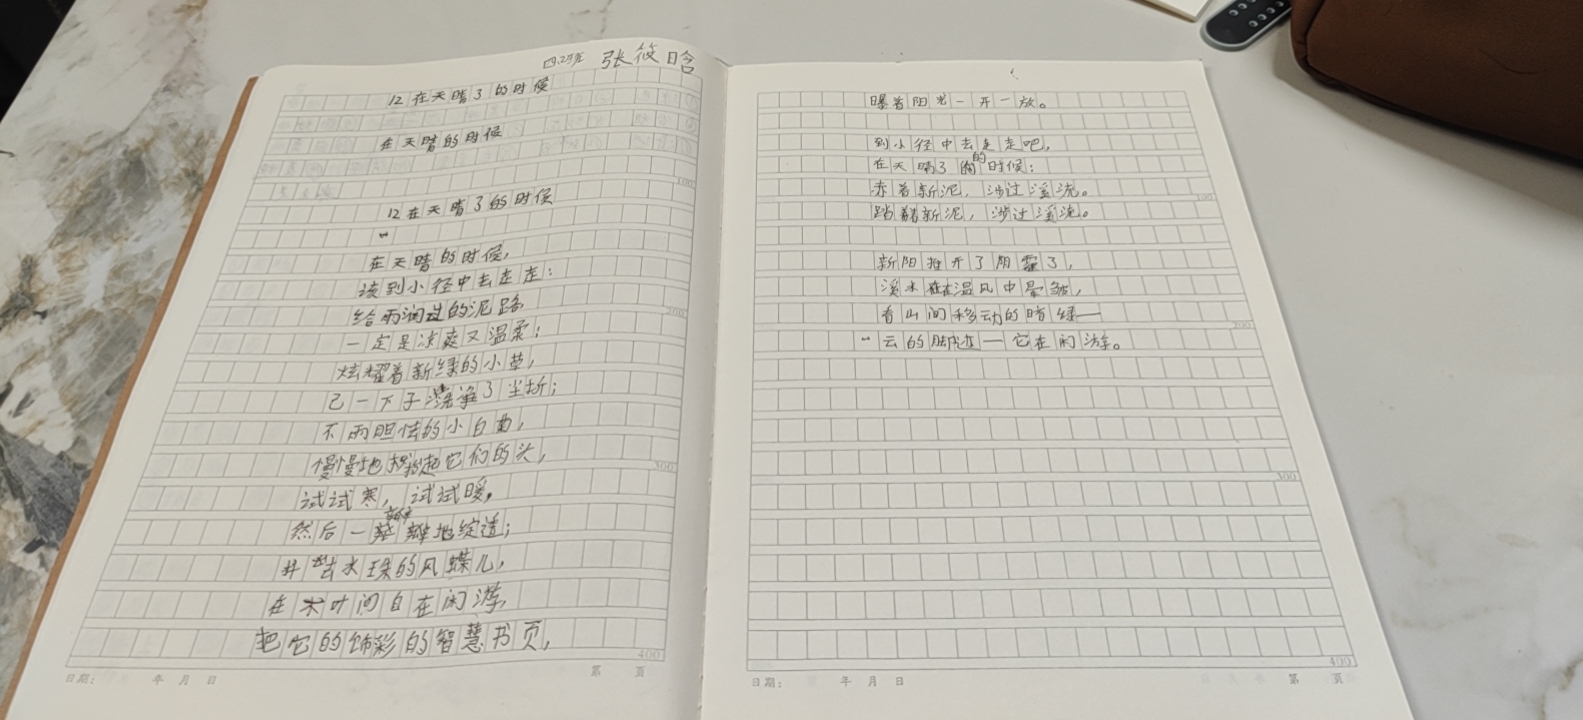 四.2班 张筱晗
12 在天晴了的时候
在天晴的时候
12 在天晴了的时候
在天晴的时候,
该到小径中去走走:
给雨润过的泥路
一定是凉爽又温柔;
炫耀着新绿的小草,
己一下子 了尘垢;
不雨胆怯的小白
慢慢地 起它们的头,
试试寒,试试暖,
然后一瓣瓣地绽透;
抖 水珠的凤蝶儿,
在木叶间自在闲游,
把它的饰彩的智慧书页,
曝着阳光一开一放。
到小径中去走走吧,
在天晴了的时候:
赤着新泥,涉过溪流。
踏着新泥,涉过溪流。
新阳推开了阴霾了,
溪水在温风中晕皱,
看山间移动的暗绿—
云的脚迹—它在闲游。
100
200
300
400
日期: 年 月 日 第 页
100
200
300
400
日期: 年 月 日 第 页